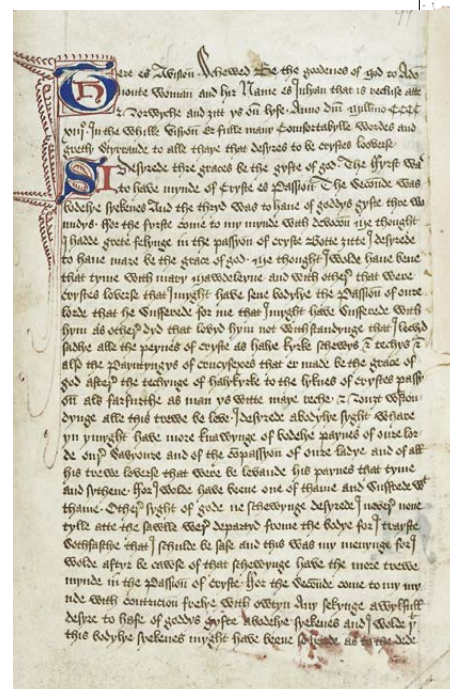 Here es A visioun Schewed Be the goodenes of god to Ade
uoute Woman and hir Name es Julyan that is recluse atte
Norwyche and ʒitt ys oun lyfe. Anno dni millimo CCCC
xiijº. In the Whilke visyoun er fulle many Comfortabylle Wordes and
gretly Styrrande to alle thaye that desyres to be crystes looverse
I desyrede thre graces be the gyfte of god The fyrst was
to have mynde of Cryste es Passioun The Secounde was
bodelye syekenes And the thryd was to have of goddys gyfte thre wo
undys. ffor the fyrste come to my mynde with devocoun me thought
I hadde grete felynge in the passyoun of cryste Botte ʒitte I desyrede
to have mare be the grace of god. me thought I wolde have bene
that tyme with mary mawdeleyne and with othere that were
crystes loverse that I myght have sene bodylye the Passioun of oure
lorde that he Sufferede for me that I myght have Sufferede with
hym as othere dyd that lovyd hym not withstandynge that I leevyd
sadlye alle the peynes of cryste as halye kyrke schewys & techys &
also the payntyngys of crucyfexes that er made be the grace of
god aftere the techynge of haly kyrke to the lyknes of crystes passy
oun als farfurthe as man ys witte maye reche. Nouʒt withston
dynge alle this trewe be leve I desyrede a bodylye syght whare
yn y myght have more knawynge of bodelye paynes of oure lor
de oure Savyoure and of the compassyoun of oure ladye and of all
his trewe loverse that were be levande his paynes that tyme
and sythene. ffor I wolde have beene one of thame and suffrede wt
thame. Othere syght of gode ne schewynge desyrede I nevere none
tylle atte the sawlle were departyd frome the bodye for I trayste
sothfastlye that I schulde be safe and this was my menynge for I
wolde aftyr be cawse of that schewynge have the more trewe
mynde in the Passioun of cryste. ffor the Secounde come to my my
nde with contricioun frelye with owtyn any sekynge a wylfull
desyre to hafe of goddys gyfte a bodelye syekenes and I wolde yt
this bodylye syekenes myght have beene so harde as to the dede